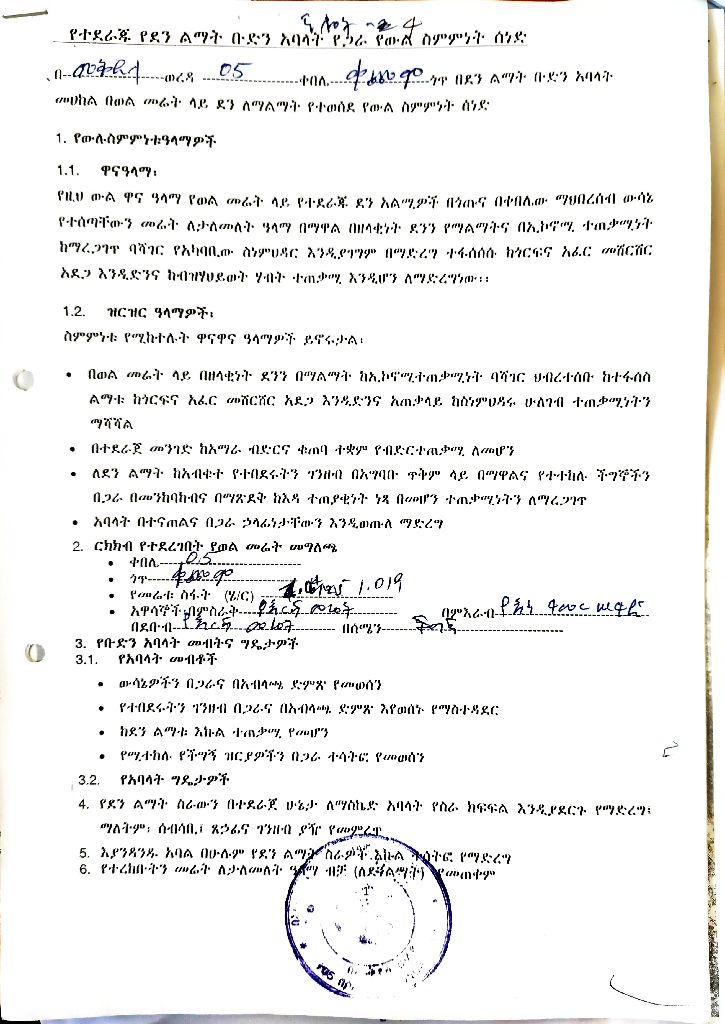 4
የተደራጁ የደን ልማት ቡድን አባላት የጋራ የውል ስምምነት ሰነድ
በ ወረዳ 05 ቀበሌ ጎጥ በደን ልማት ቡድን አባላት
መሀከል በወል መሬት ላይ ደን ለማልማት የተወሰደ የውል ስምምነት ሰነድ
1. የውሉስምምነቱዓላማዎች
1.1. ዋናዓላማ፡
የዚህ ውል ዋና ዓላማ የወል መሬት ላይ የተደራጁ ደን አልሚዎች በጎጡና በቀበሌው ማህበረሰብ ውሳኔ
የተሰጣቸውን መሬት ለታለመለት ዓላማ በማዋል በዘላቂነት ደንን የማልማትና በኢኮኖሚ ተጠቃሚነት
ከማረጋገጥ ባሻገር የአካባቢው ስነምህዳር እንዲያገግም በማድረግ ተፋሰሰሱ ከጎርፍና አፈር መሸርሸር
አደጋ እንዲድንና ከብዝሃህይወት ሃብት ተጠቃሚ እንዲሆን ለማድረግነው፡፡
1.2. ዝርዝር ዓላማዎች፡
ስምምነቱ የሚከተሉት ዋናዋና ዓላማዎች ይኖሩታል፡
• በወል መሬት ላይ በዘላቂነት ደንን በማልማት ከኢኮኖሚተጠቃሚነት ባሻገር ህብረተሰቡ ከተፋሰስ
ልማቱ ከጎርፍና አፈር መሸርሸር አደጋ እንዲድንና አጠቃላይ ከስነምህዳሩ ሁለገብ ተጠቃሚነትን
ማሻሻል
• በተደራጀ መንገድ ከአማራ ብድርና ቁጠባ ተቋም የብድርተጠቃሚ ለመሆን
• ለደን ልማት ከአብቁተ የተበደሩትን ገንዘብ በአግባቡ ጥቅም ላይ በማዋልና የተተከሉ ችግኞችን
በጋራ በመንከባከብና በማጽደቅ ከእዳ ተጠያቂነት ነጻ በመሆን ተጠቃሚነትን ለማረጋገጥ
• አባላት በተናጠልና በጋራ ኃላፊነታቸውን እንዲወጡሉ ማድረግ
2. ርክክብ የተደረገበት የወል መሬት መግለጫ
• ቀበሌ 05
• ጎጥ
• የመሬቱ ስፋት (ሄ/ር) 1.019
• አዋሳኞች፡በምስራቅ በምእራብ
በደቡብ በሰሜን
3. የቡድን አባላት መብትና ግዴታዎች
3.1. የአባላት መብቶች
• ውሳኔዎችን በጋራና በአብላጫ ድምጽ የመወሰን
• የተበደሩትን ገንዘብ በጋራና በአብላጫ ድምጽ እየወሰኑ የማስተዳደር
• ከደን ልማቱ እኩል ተጠቃሚ የመሆን
• የሚተከሉ የችግኝ ዝርያዎችን በጋራ ተሳትፎ የመወሰን
3.2. የአባላት ግዴታዎች
4. የደን ልማት ስራውን በተደራጀ ሁኔታ ለማስኬድ አባላት የስራ ክፍፍል እንዲያደርጉ የማድረግ፤
ማለትም፡ ሰብሳቢ፤ ጸኃፊና ገንዘብ ያዥ የመምረጥ
5. እያንዳንዱ አባል በሁሉም የደን ልማት ስራዎች እኩል ተሳትፎ የማድረግ
6. የተረከቡትን መሬት ለታለመለት ዓላማ ብቻ (ለደንልማት) የመጠቀም